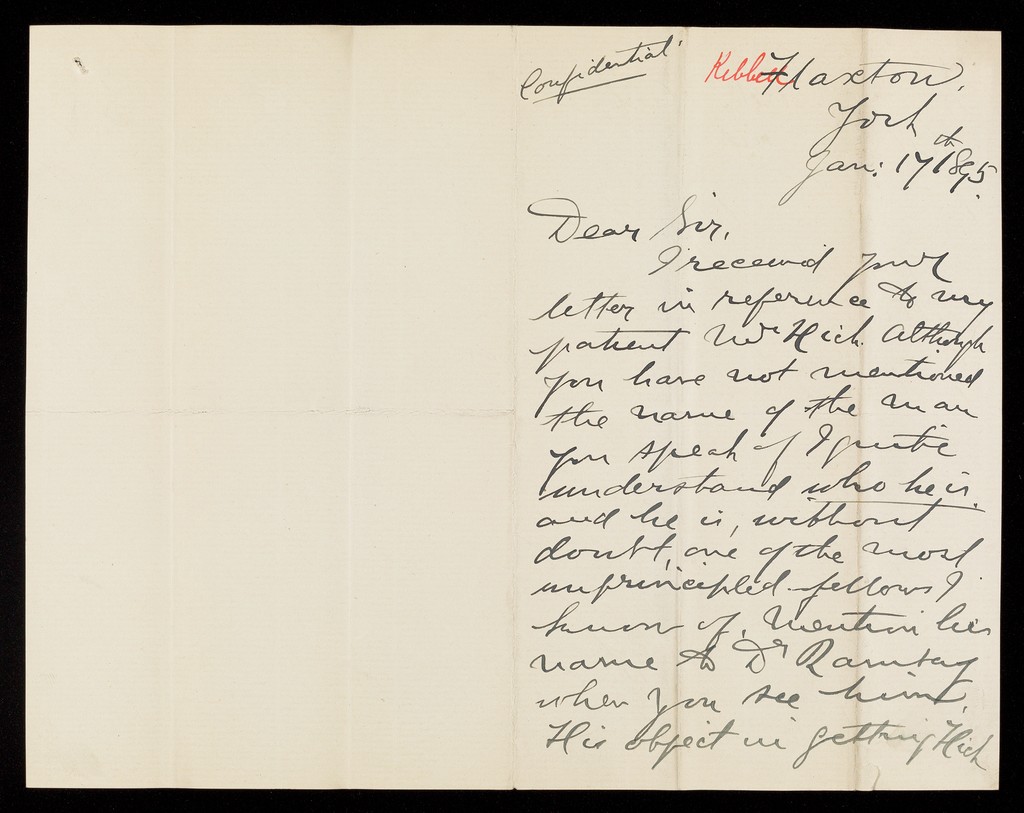 Confidential:
Flaxton,
York
Jan: 17th 1895.
Dear Sir,
I received your
letter in reference to my
patient Mr Hick. Although
you have not mentioned
the name of the man
you speak of I quite
understand who he is.
and he is, without
doubt, one of the most
unprincipled fellows I
know of. Mention his
name to Dr Ramsay
when you see him.
His object in getting Hick